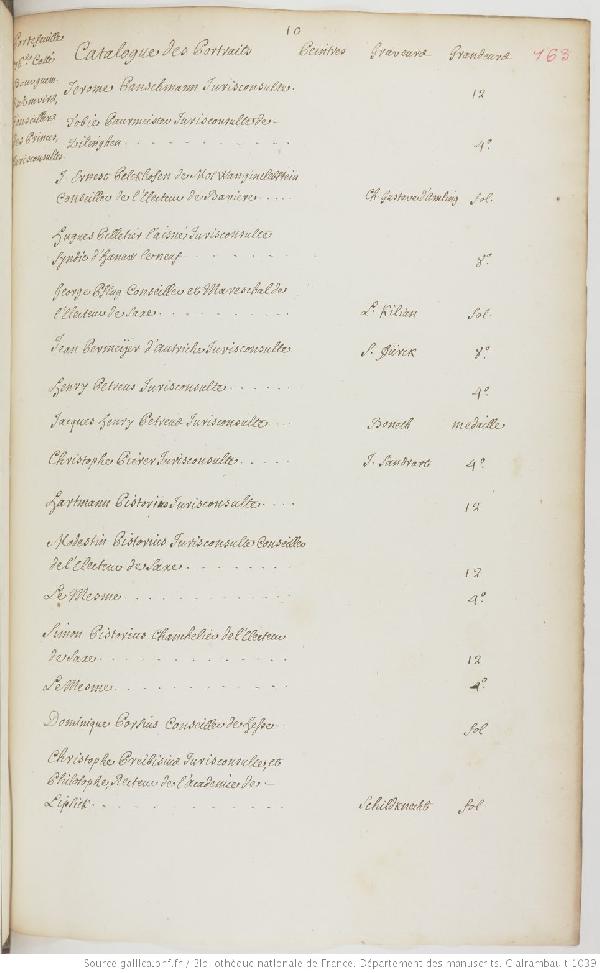 10
Catalogue des Portraits Peintres Graveurs Grandeurs 163
Portefeuille
Bourguem.
Conseillers
des Princes,
Jurisconsultes
Jerome Panschmann Jurisconsulte. 12
Tobie Paurmeister Jurisconsulte de
4º
J. Ernest Pelckhofen de Mos Wanginelstein
Conseiller de l'Electeur de Baviere . . . . Ch. Gustave d'Amling fol.
Hugues Pelletier l'aisné, Jurisconsulte
Syndic d'Hanau le neuf . . . . . . 8º
George Pflug Conseiller et Mareschal de
l'Electeur de Saxe . . . . . . . L. Kilian fol.
Jean Permeijer d'Autriche Jurisconsulte S. 8º
Henry Petreus Jurisconsulte . . . . . 4º
Jacques Henry Petreus Jurisconsulte . . . Bonech medaille
Christophe Pierer Jurisconsulte . . . . J. Sandrart 4º
Hartmann Pistorius Jurisconsulte . . . . 12
Modestin Pistorius Jurisconsulte Conseiller
de l'Electeur de Saxe . . . . . . . 12
Le Mesme . . . . . . . . . . 4º
Simon Pistorius Chancelier de l'Electeur
de Saxe . . . . . . . . . . . 12
Le Mesme . . . . . . . . . . . 4º
Dominique Porsius Conseiller de Hesse fol
Christophe Preibisius Jurisconsulte, et
Philosophe, Recteur de l'Academie de
Lipsick . . . . . . . . . . . Schildknecht fol
Source gallica.bnf.fr / Bibliothèque nationale de France. Département des manuscrits. Clairambault 1039